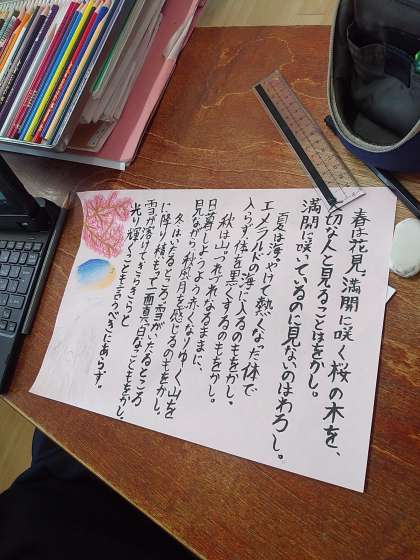 春は花見。満開に咲く桜の木を、
大切な人と見ることはをかし。
満開に咲いているのに見ないのはわろし。
夏は海。やけに熱くなった体で
エメラルドの海に入るのもをかし。
入らず体を黒くするのもをかし。
秋は山。つれづれなるままに、
日暮しようよう赤くなりゆく山を
見ながら秋風月を感じるのもをかし。
冬はいたるところ。雪がいたるところ
に降り積もって一面真白なこともをかし。
雪が溶けてきらきらきらと
光り輝くことも言うべきにあらず。